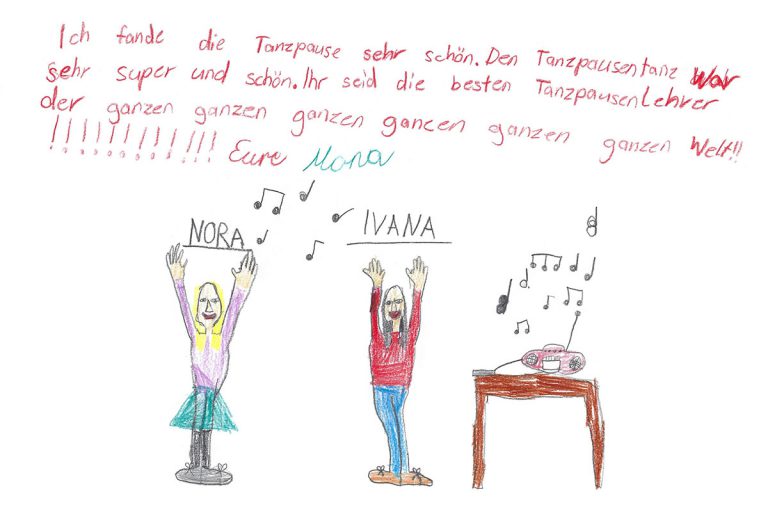 Ich fande die Tanzpause sehr schön. Den Tanzpausentanz war
sehr super und schön. Ihr seid die besten Tanzpausenlehrer
der ganzen ganzen ganzen gancen ganzen ganzen Welt!!
!!!!!!!!!!! Eure Mona
NORA
IVANA